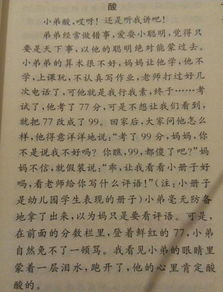 酸
小弟酸，哎呀！还是听我讲吧！
弟弟经常做错事，爱耍小聪明，觉得只
要是天下事，以他的聪明绝对能蒙过去。
小弟弟的算术很不好，妈妈让他学，他不
学，上课玩，不认真写作业，老师打过好几
次电话了，可他就是我行我素，终于……考
试了，他考了77分，可是不想让我们看到，
就把77改成了99。回家后，大家问他怎么
样，他得意洋洋地说，“考了99分，妈妈，你
不是说我不好吗？你瞧，99，都傻了吧？”妈
妈不信，就假装说：“乖，让我看看小册子好
吗，看老师给你写什么评语！”（注：小册子
是幼儿园学生表现的册子）小弟毫无防备
地拿了出来，以为妈只是要看评语。可是，
在前面的分数栏里，登着鲜红的77，小弟
自然免不了一顿骂。我看见小弟的眼睛里
蒙着一层泪水，跑开了，他的心里肯定酸
酸的。